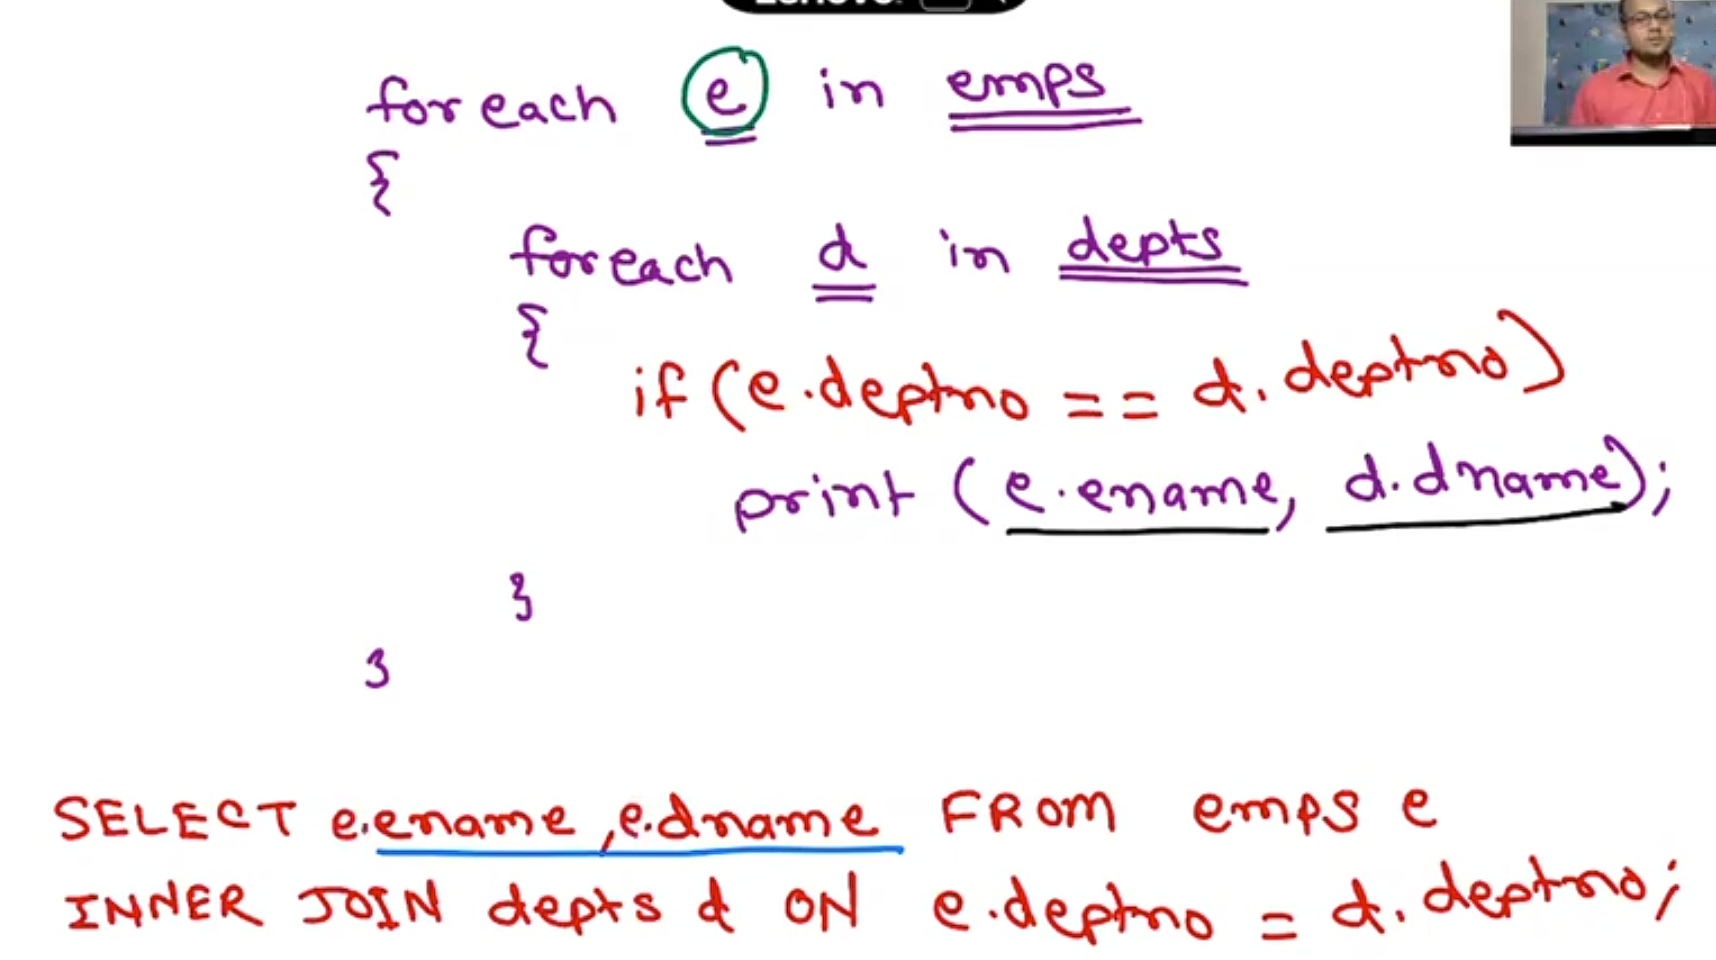 for each e in emps
{
for each d in depts
{
if (e.deptno == d.deptno)
print (e.ename, d.dname);
}
}
SELECT e.ename, e.dname FROM emps e
INNER JOIN depts d ON e.deptno = d.deptno;